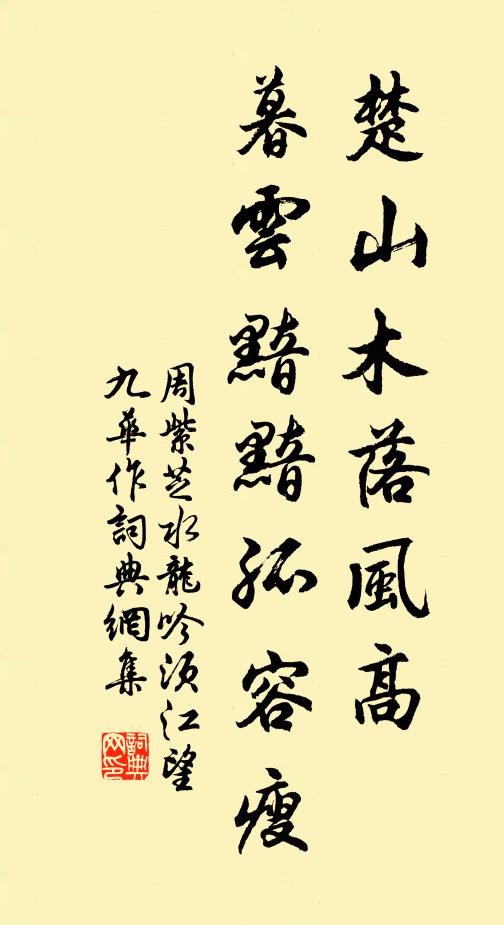 楚山木落風高
暮雲黯黯孤容瘦
周紫芝水龍吟須江望
九華作詞典網集
詞典網印